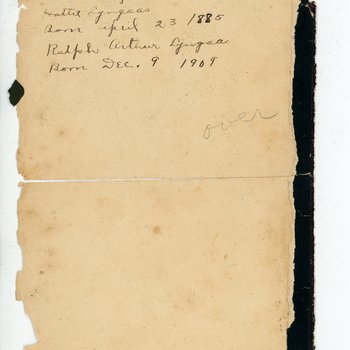 Hattie Lyngaas
Born April 23 1885
Ralph Arthur Lyngaa
Born Dec. 9 1909
over